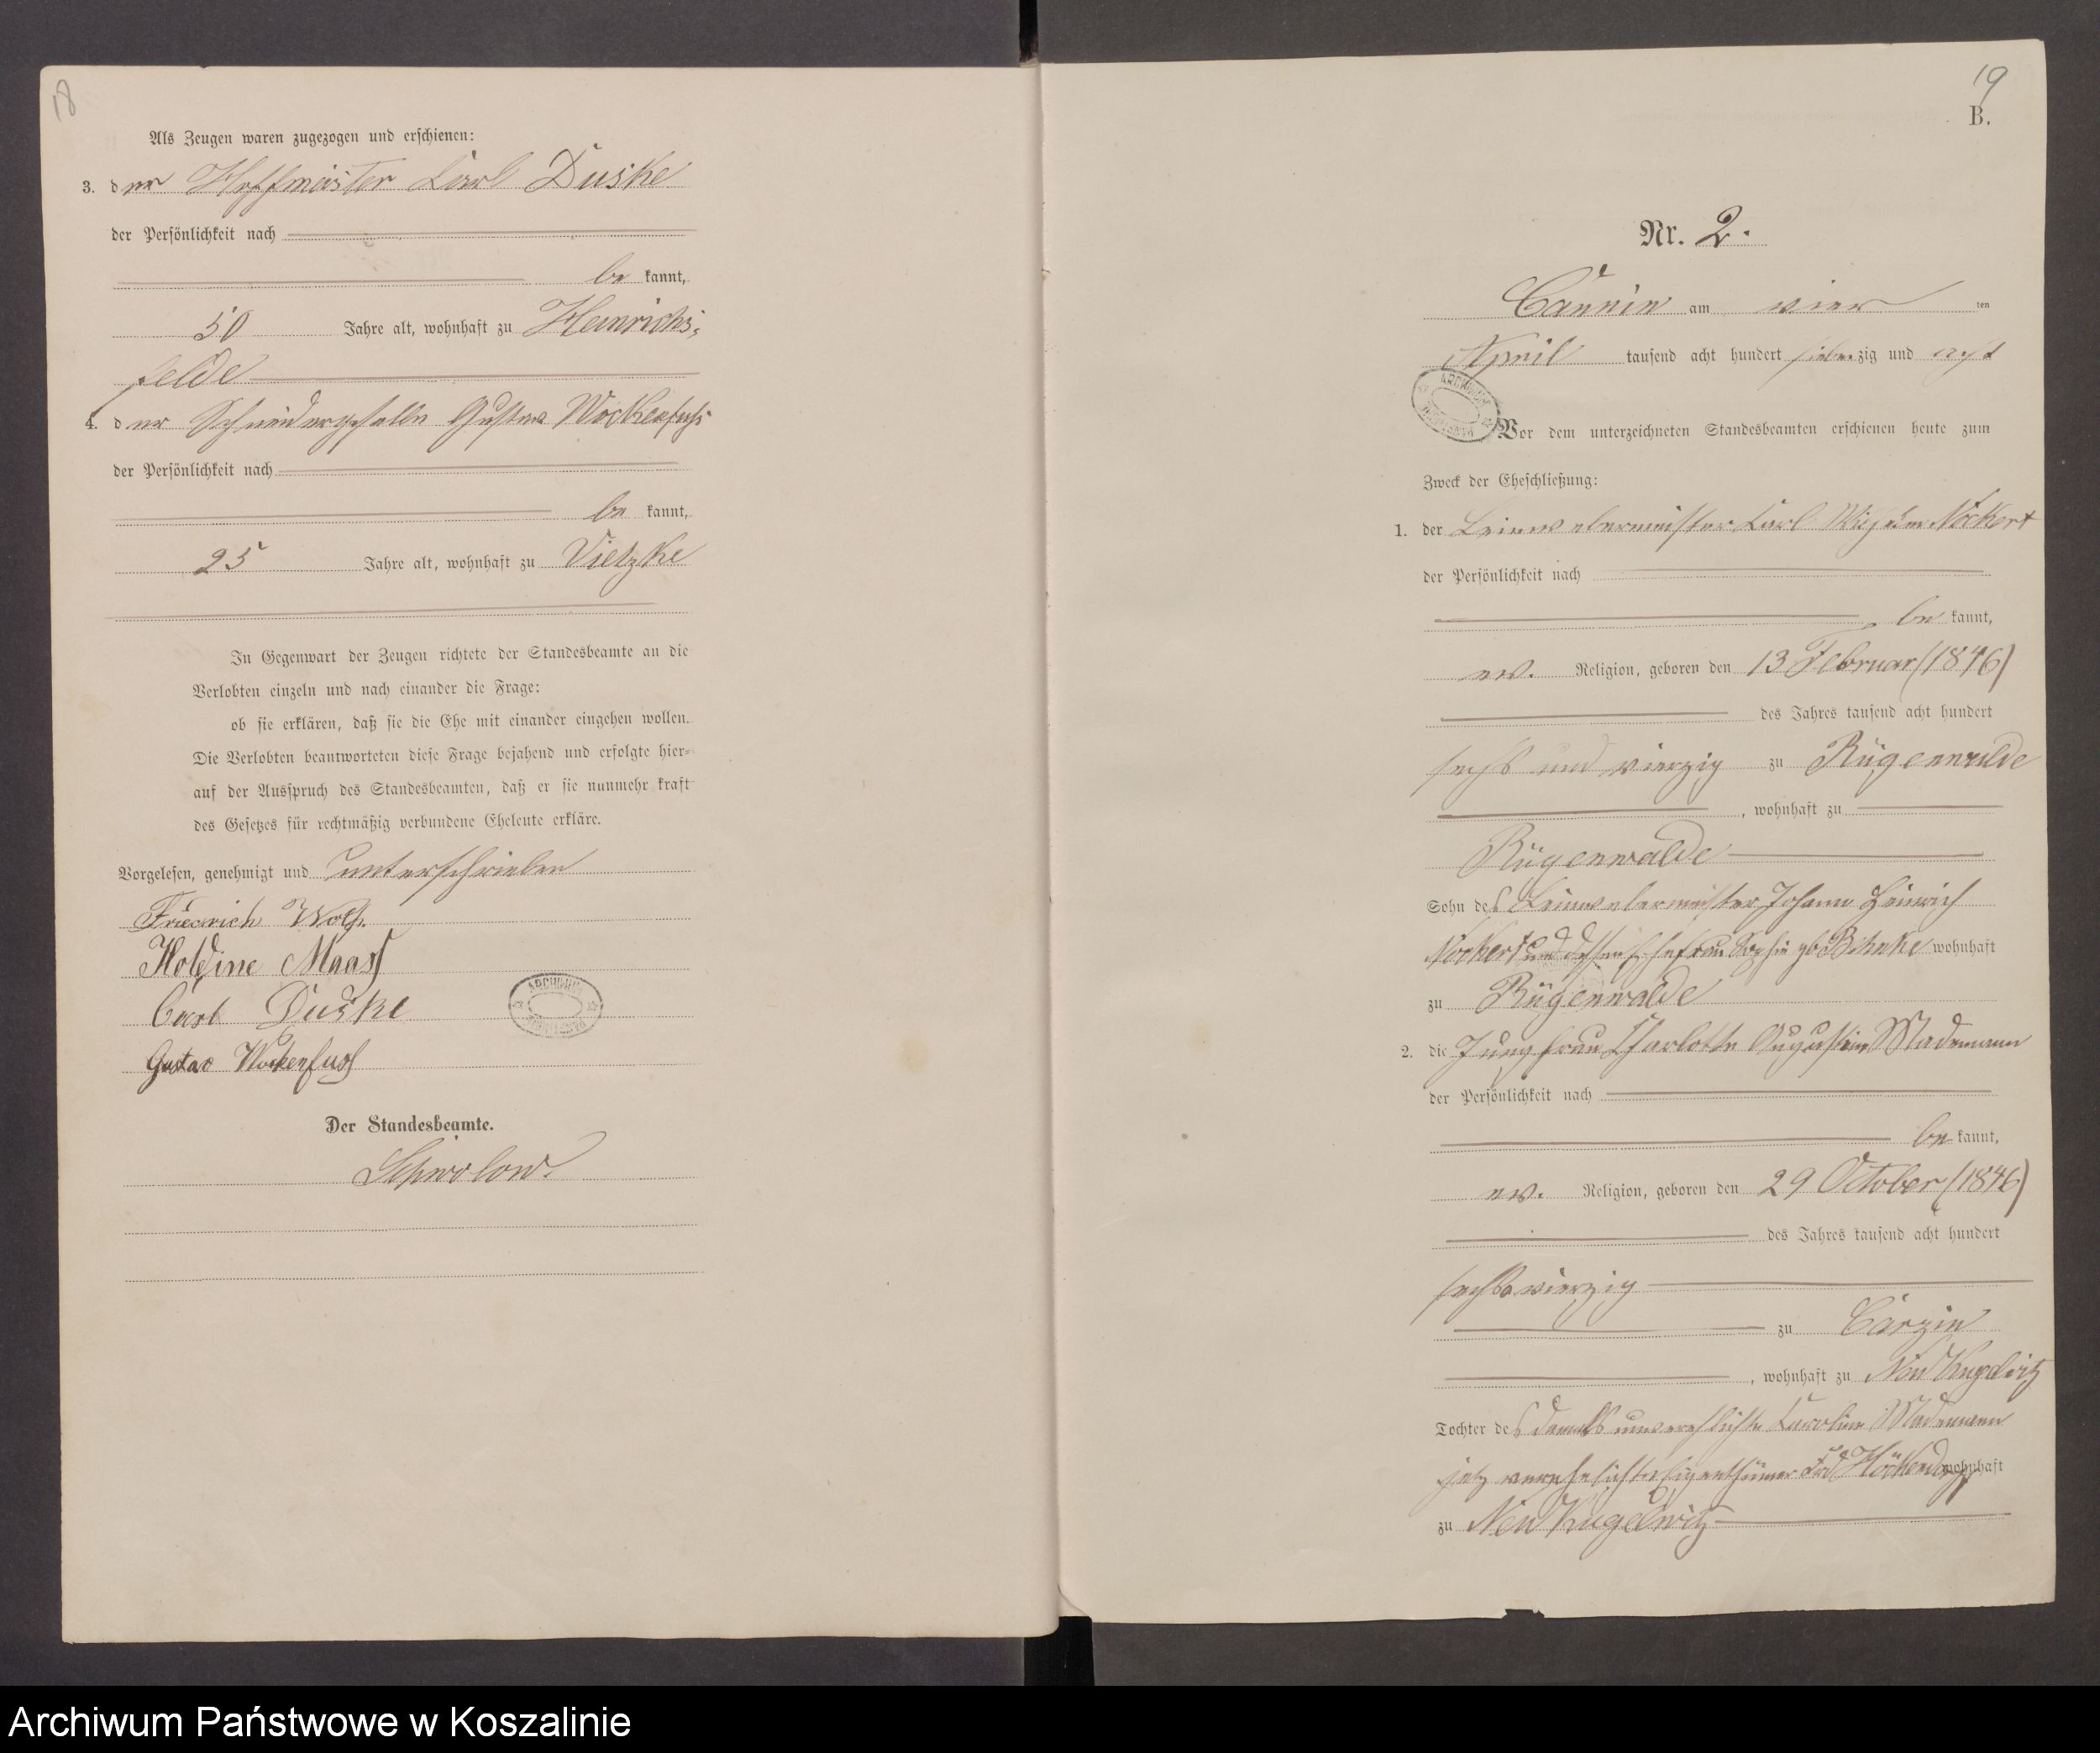 18
Als Zeugen waren zugezogen und erschienen:
3. der Hoffmeister Carl Duske
der Persönlichkeit nach
be kannt,
50 Jahre alt, wohnhaft zu Heinrichs-
felde
4. der Schneidergeselle Gustav Wockenfuß
der Persönlichkeit nach
be kannt,
25 Jahre alt, wohnhaft zu Vietzke
In Gegenwart der Zeugen richtete der Standesbeamte an die
Verlobten einzeln und nach einander die Frage:
ob sie erklären, daß sie die Ehe mit einander eingehen wollen.
Die Verlobten beantworteten diese Frage bejahend und erfolgte hier-
auf der Ausspruch des Standesbeamten, daß er sie nunmehr kraft
des Gesetzes für rechtmäßig verbundene Eheleute erkläre.
Vorgelesen, genehmigt und unterschrieben
Friedrich Wolf.
Holdine Maaß
Carl Duske
ARCHIWUM
Gustav Wockenfuß
Der Standesbeamte.
Schwolow.
19
B.
Nr. 2.
Cannin am vier ten
April tausend acht hundert siebenzig und acht
ARCHIWUM
Vor dem unterzeichneten Standesbeamten erschienen heute zum
Zweck der Eheschließung:
1. der Leinwebermeister Carl Wilhelm Nöckert
der Persönlichkeit nach
be kannt,
ev. Religion, geboren den 13 Februar (1846)
des Jahres tausend acht hundert
sechs und vierzig zu Rügenwalde
, wohnhaft zu
Rügenwalde
Sohn des Leinwebermeister Johann Heinrich
Nöckert und dessen Ehefrau Sophie gb Behnke wohnhaft
zu Rügenwalde
2. die Jungfrau Charlotte Augustine Mademann
der Persönlichkeit nach
be kannt,
ev. Religion, geboren den 29 October (1846)
des Jahres tausend acht hundert
sechsvierzig
zu Carzin
, wohnhaft zu Neu Kugelwitz
Tochter des damals unverehlichte Karoline Mademann
jetz verehelichte Eigenthümer Höckendorf wohnhaft
zu Neu Kugelwitz
Archiwum Państwowe w Koszalinie